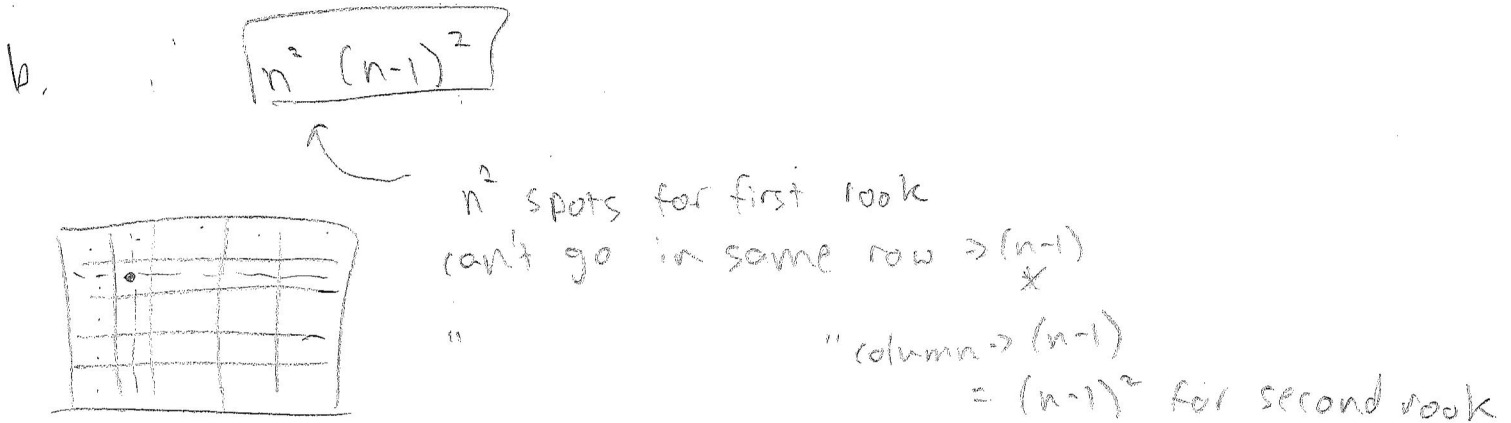 b. n² (n-1)²
n² spots for first rook
can't go in same row => (n-1)
*
" " column => (n-1)
= (n-1)² for second rook